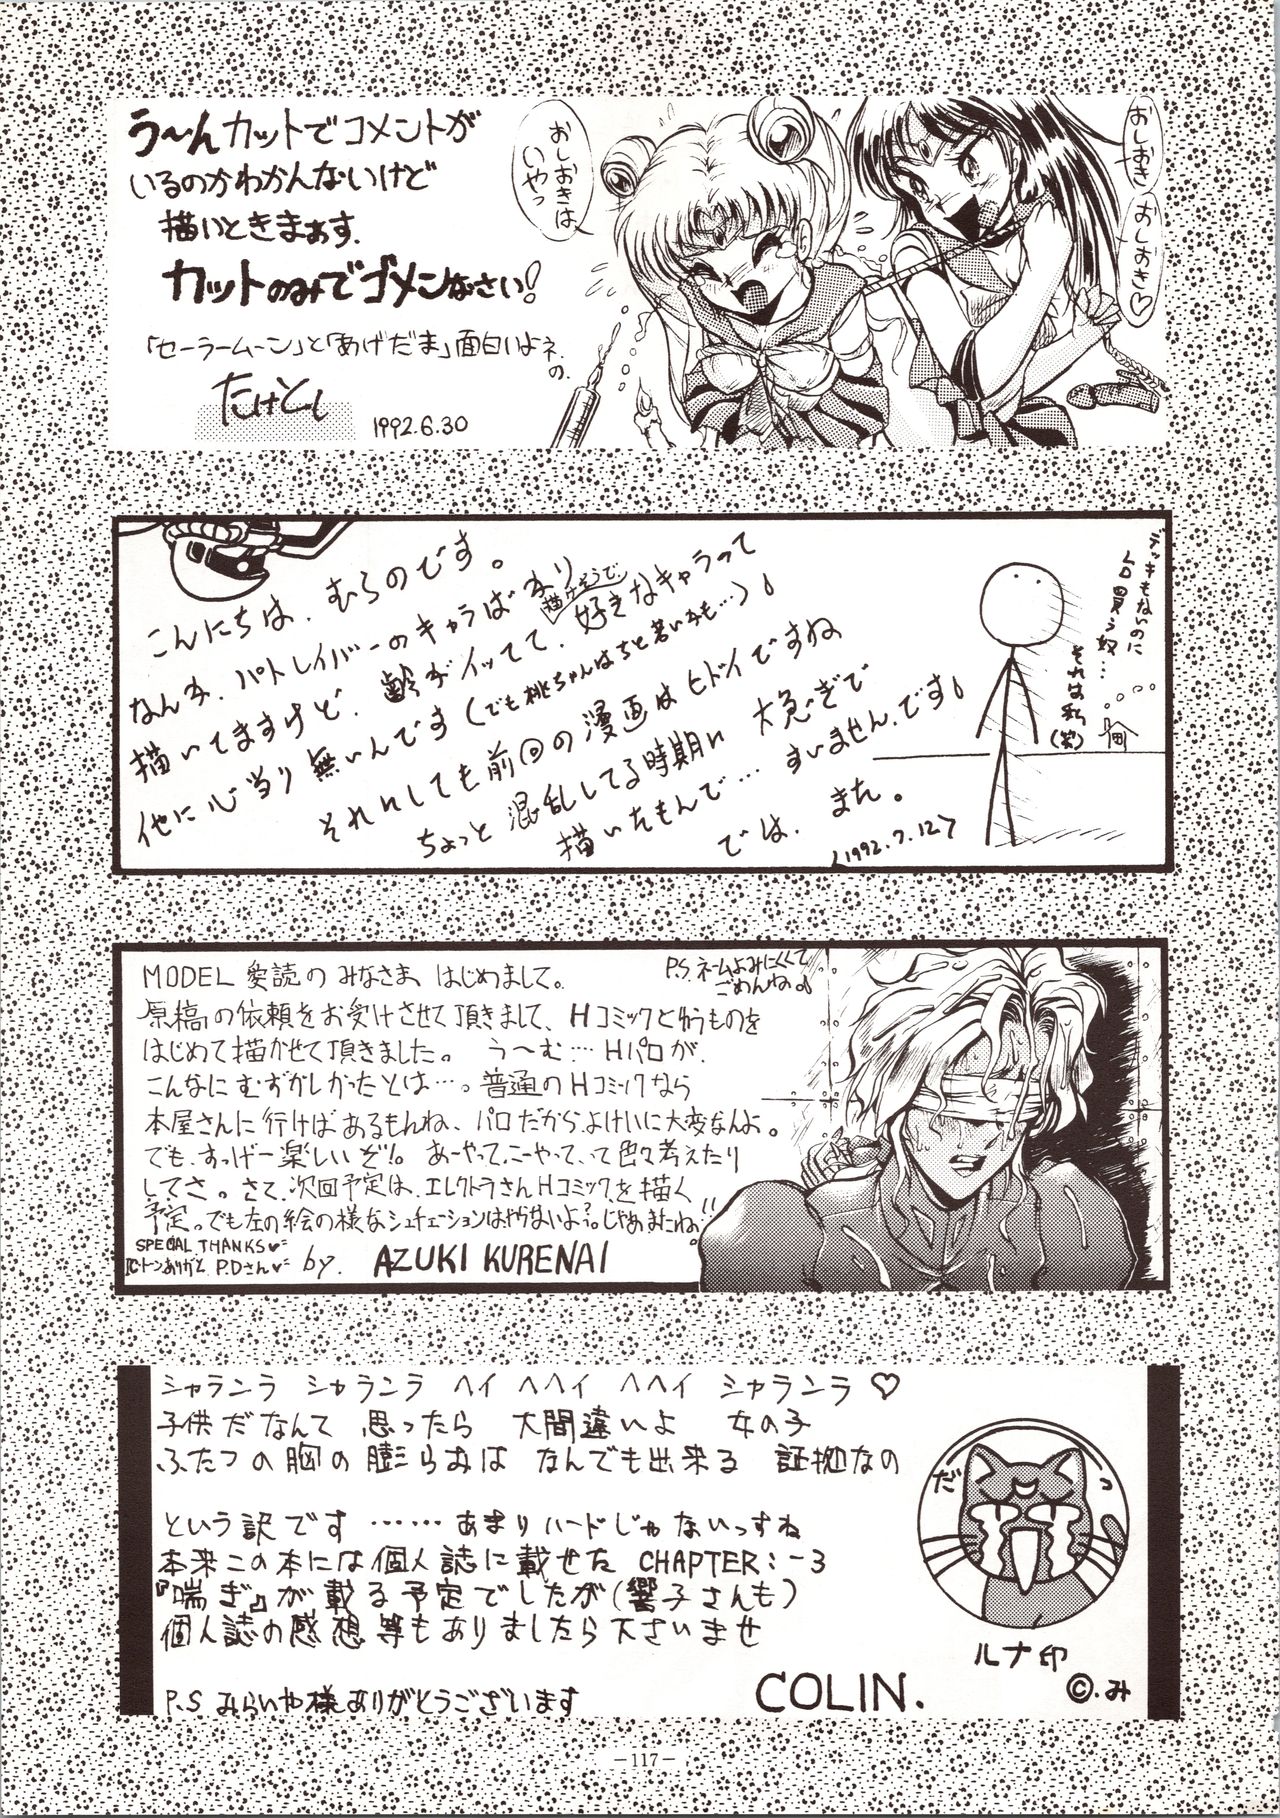 う〜んカットでコメントが
いるのかわかんないけど
描いときまぁす.
カットのみでゴメンなさい!
「セーラームーン」と「あげだま」面白いよネ.
の.
たけとし
1992.6.30
おしおきは
いやっ
おしおき
おしおき♡
こんにちは、むらのです。
なんか、パトレイバーのキャラばかり
描いてますけど、齢がイッてて、描けそうで好きなキャラって
他に心当り無いんです(でも桃ちゃんはちと若いかも…)♪
それにしても前回の漫画はヒドイですね
ちょっと混乱してる時期に大急ぎで
描いたもんで…すいません、です♪
では、また。
<1992.7.12>
デッキもないのに
LD買う奴…
それは私(笑)
MODEL 愛読のみなさま、はじめまして。
原稿の依頼をお受けさせて頂きまして、Hコミックとゆうものを
はじめて描かせて頂きました。う〜む…Hパロが、
こんなにむずかしかったとは…。普通のHコミックなら
本屋さんに行けばあるもんね、パロだからよけいに大変なんよ。
でも、すっげー楽しいぞ!。あーやって、こーやって、って色々考えたり
してさ。さて、次回予定は、エレクトラさんHコミックを描く
予定。でも左の絵の様なシュチェーションはやらないよ?。じゃぁまたね!!
SPECIAL THANKS♥
トーンありがと P.Dさん♥ by. AZUKI KURENAI
P.S.ネームよみにくくて
ごめんね♪
シャランラ シャランラ ヘイ ヘヘイ ヘヘイ シャランラ♡
子供だなんて 思ったら 大間違いよ 女の子
ふたつの胸の膨らみは なんでも出来る 証拠なの
という訳です ……… あまりハードじゃないっすね
本来この本には個人誌に載せた CHAPTER:-3
『喘ぎ』が載る予定でしたが(響子さんも)
個人誌の感想等もありましたら下さいませ
P.S みらいや様ありがとうございます
COLIN.
だ
っ
ルナ印
©.み
-117-